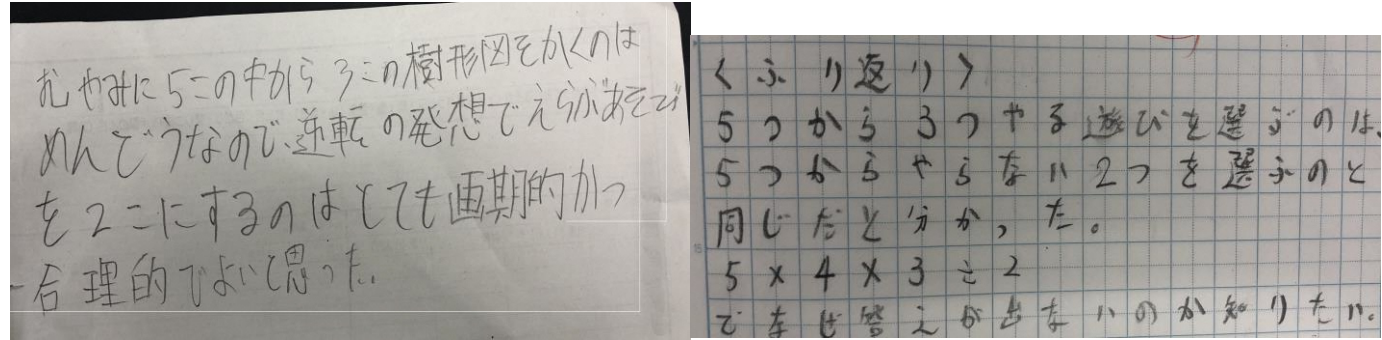 むやみに5この中から3この樹形図をかくのは
めんどうなので、逆転の発想でえらぶあそび
を2こにするのはとても画期的かつ
合理的でよいと思った。
<ふり返り>
5つから3つやる遊びを選ぶのは、
5つからやらない2つを選ぶのと
同じだと分かった。
5×4×3÷2
でなぜ答えが出ないのか知りたい。